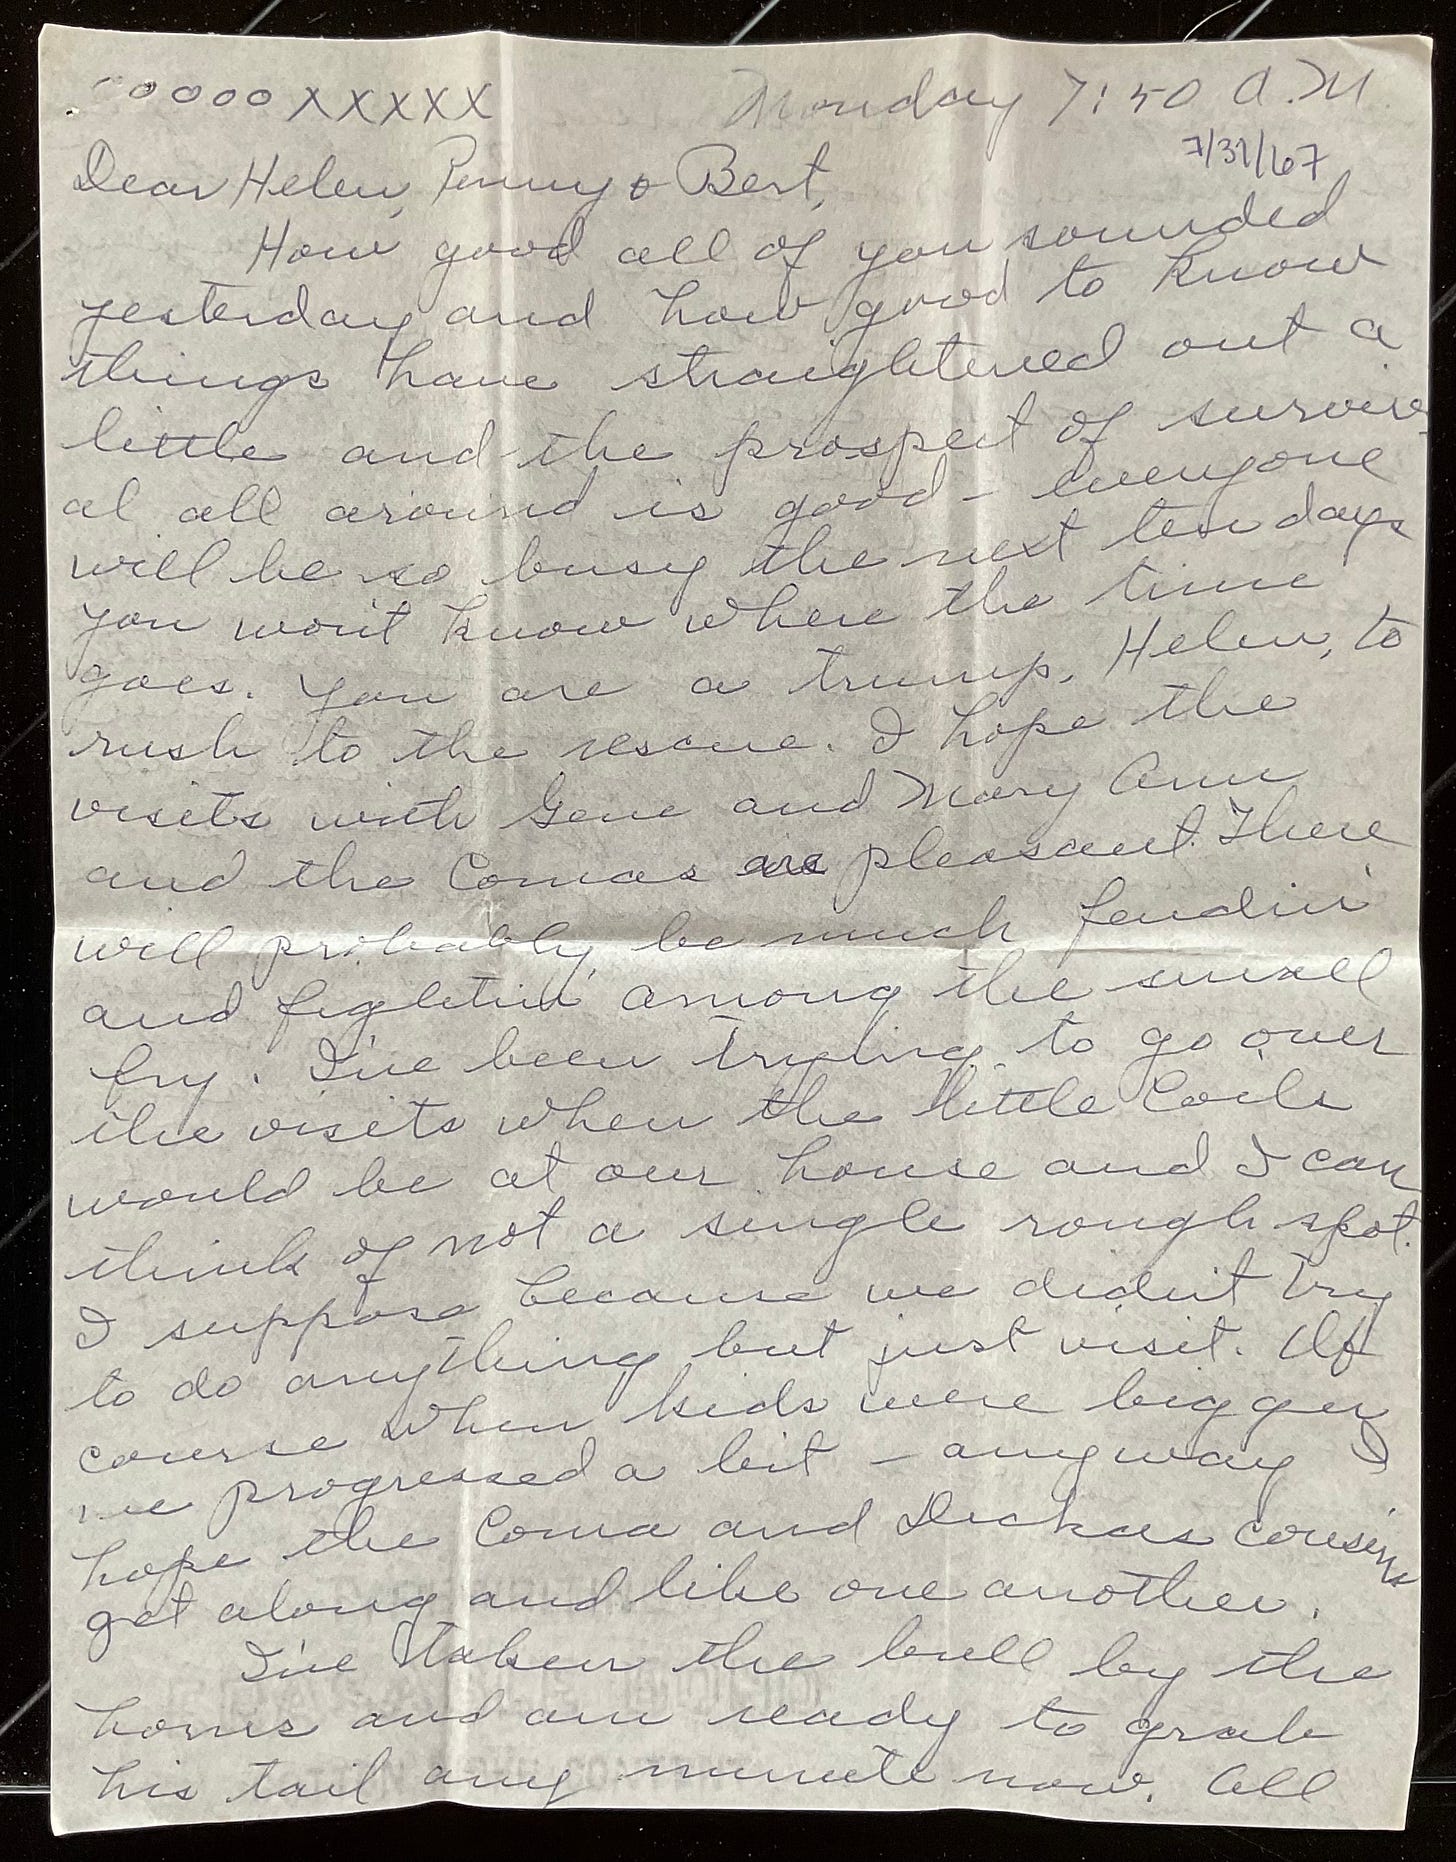 ooooo XXXXX Monday 7:50 A.M.
7/31/67
Dear Helen, Penny & Bert,
How good all of you sounded
yesterday and how good to know
things have straightened out a
little and the prospect of surviv-
al all around is good - everyone
will be so busy the next ten days
you won't know where the time
goes. You are a trump, Helen, to
rush to the rescue. I hope the
visits with Gene and Mary Ann
and the Comas are pleasant. There
will probably be much feudin'
and fightin' among the small
fry. I've been trying to go over
the visits when the little Coels
would be at our house and I can
think of not a single rough spot.
I suppose because we didn't try
to do anything but just visit. Of
course when kids were bigger
we progressed a bit - anyway I
hope the Coma and Dickas cousins
get along and like one another.
I've taken the bull by the
horns and am ready to grab
his tail any minute now. All